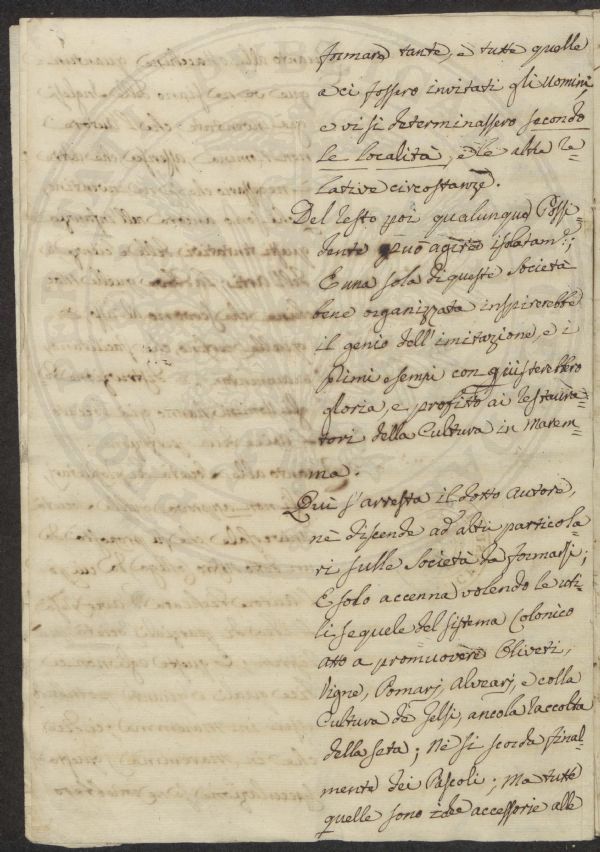 formare tante, e tutte quelle
a ci fossero invitati gli Uomini,
e vi si determinassero secondo
le località, e le altre re=
lative circostanze.
Del resto poi qualunque Possi=
dente può agire isolatam.e;
E una sola di queste Società
bene organizzata inspirerebbe
il genio dell'imitazione, e i
primi esempi conquisterebbero
gloria, e profitto ai restaura=
tori della Cultura in Marem=
ma.
Quì s'arresta il dotto autore,
nè discende ad altri particola=
ri sulle Società da formarsi;
E solo accenna volendo le uti=
li sequele del sistema Colonico
atto a promuovere Oliveti,
Vigne, Pomarj, Alvearj, e colla
Cultura de Gelsi, ancola raccolta
della seta; Nè si scorda final=
mente dei Pascoli; Ma tutte
quelle sono idee accessorie alle